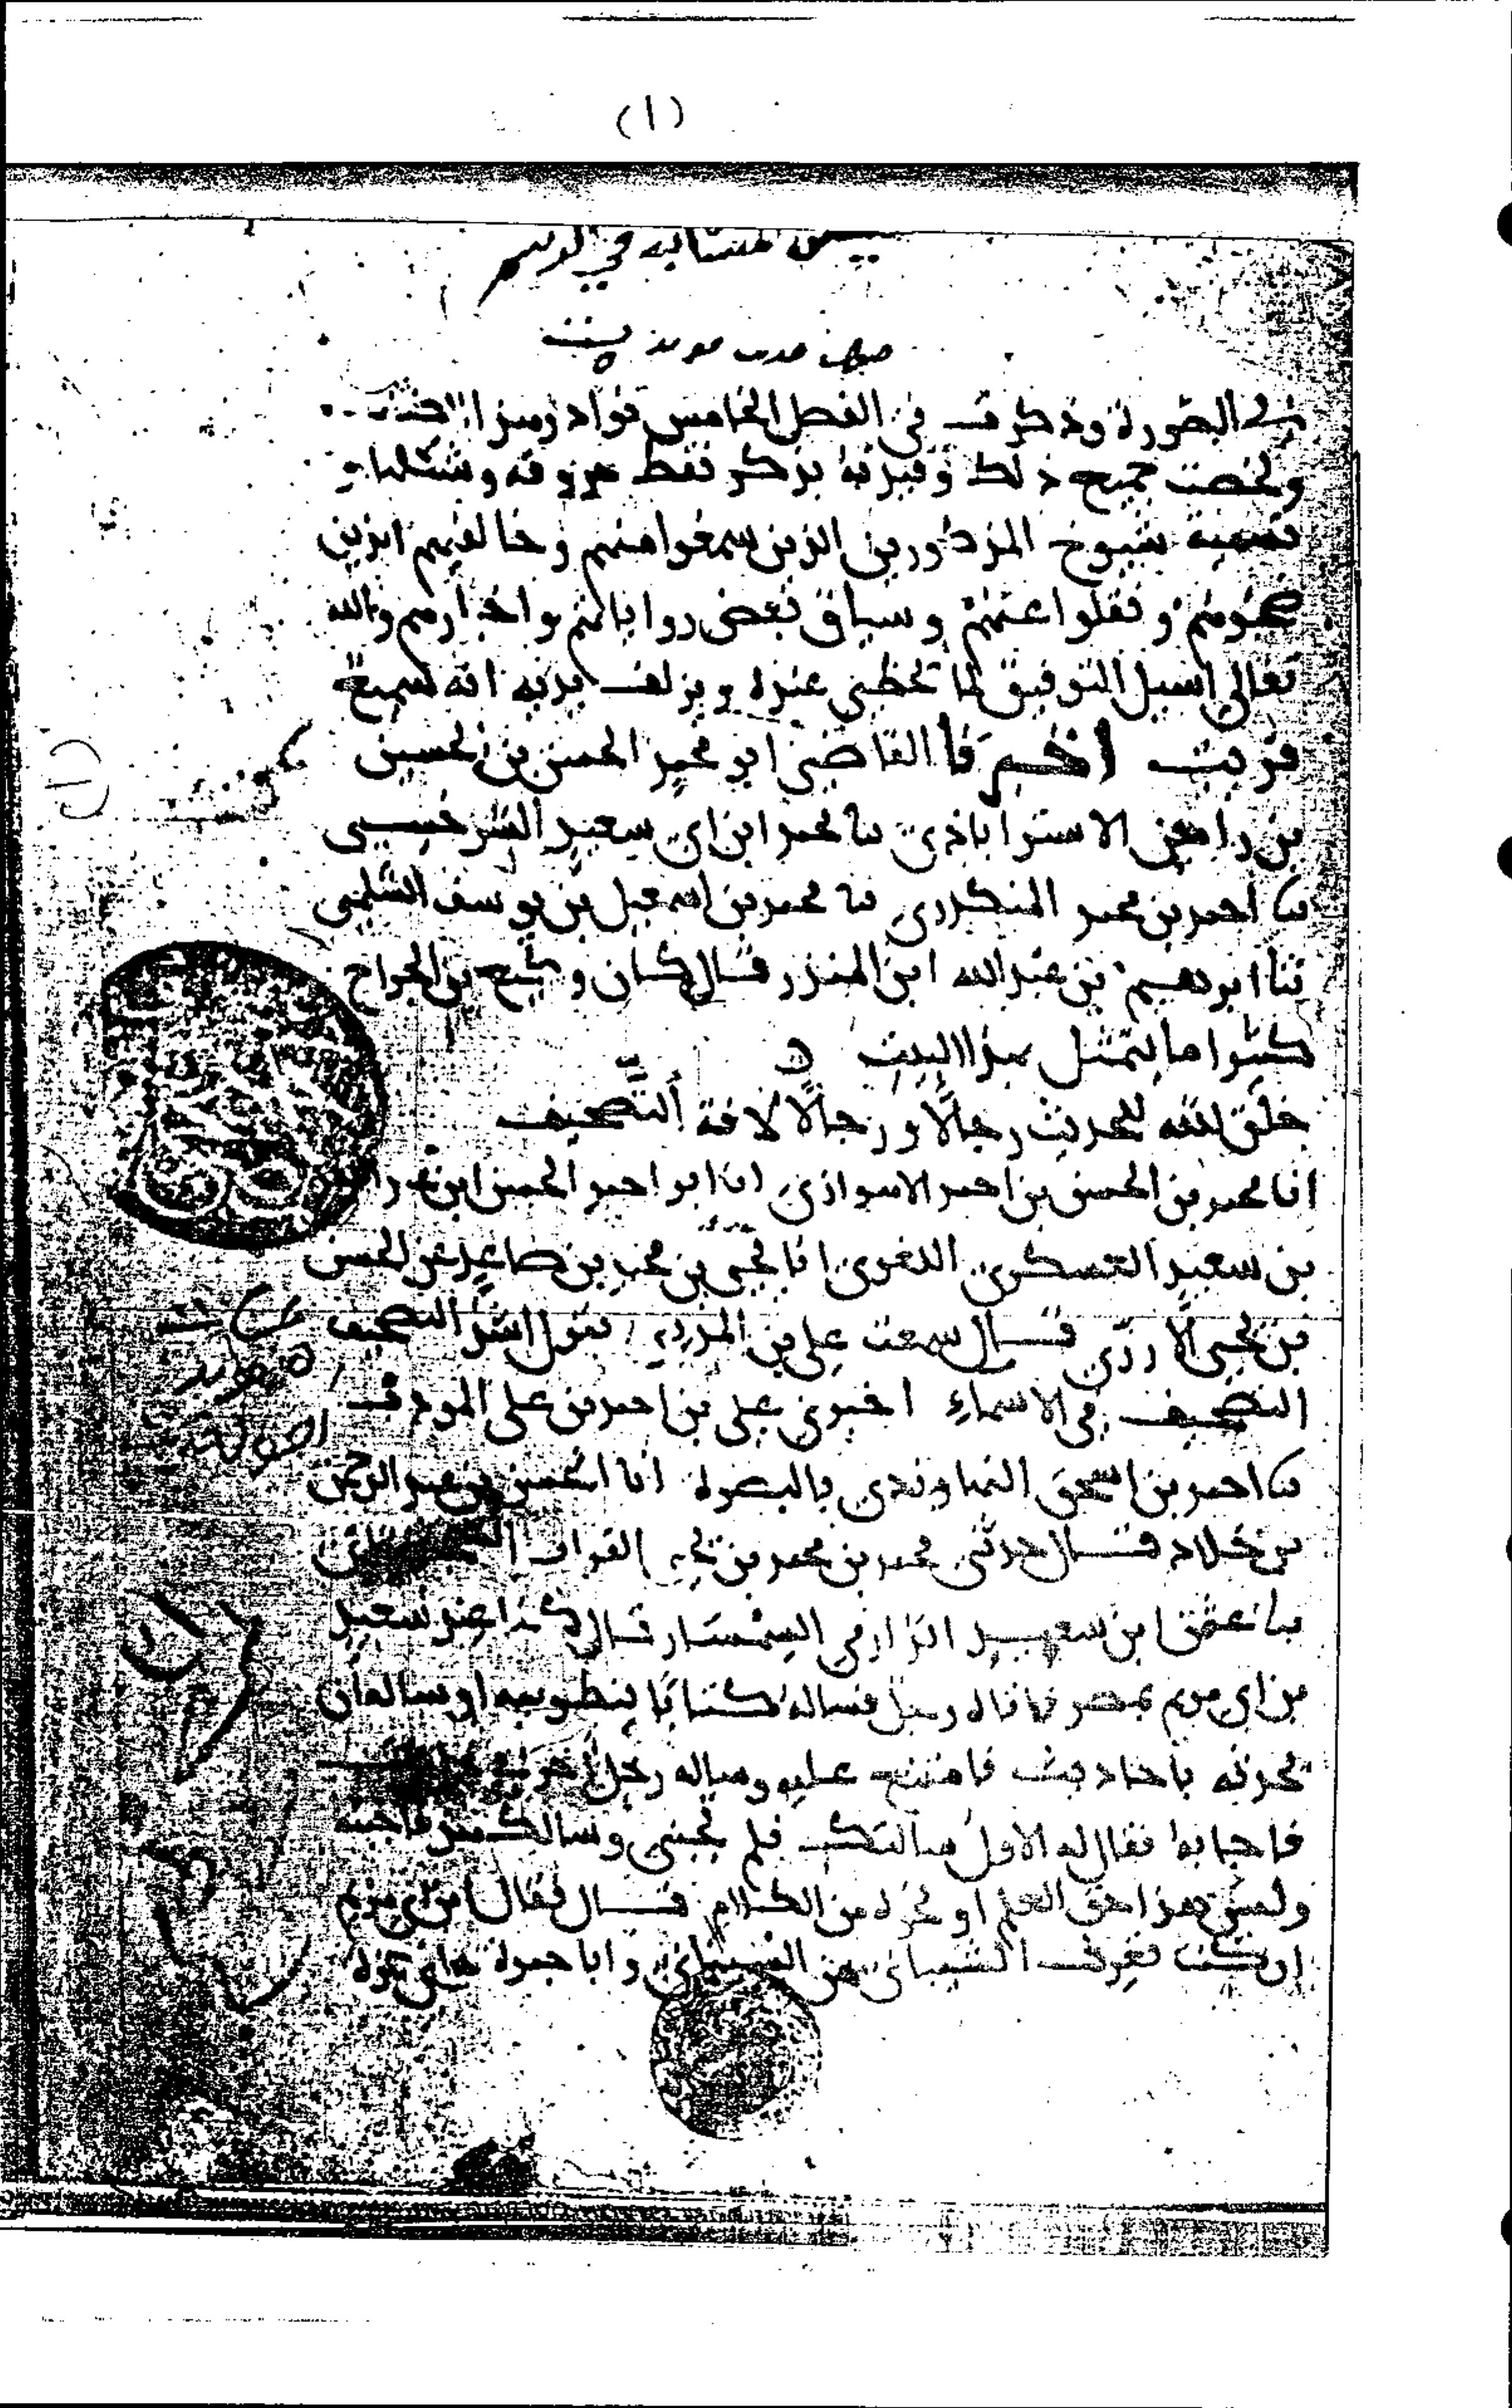 (١)
المتشابه في الرسم
في الصورة وذكرت في الفصل الخامس نوادر من
ولخصت جميع ذلك وقيدته بذكر نقط حروفه وشكلها و
تسمية شيوخ المذكورين الذين سمعوا منهم وخالفيهم الذين
صحبوهم ونقلوا عنهم وسياق بعض رواياتهم واخبارهم والله
تعالى اسئل التوفيق لما يحظي عنده ويزلف لديه انه سميع
قريب اخبرنا القاضي ابو محمد الحسن بن الحسين
بن رامين الاستراباذي نا محمد ابن ابي سعيد السرخسي
نا احمد بن محمد المنكدري نا محمد بن اسمعيل بن يوسف السلمي
ثنا ابرهيم بن عبد الله ابن المنذر قال كان وكيع بن الجراح
كثيرا ما يتمثل بهذا البيت
خلق الله للحديث رجالا ورجالا لافة التصحيف
انا محمد بن الحسن بن احمد الاهوازي انا ابو احمد الحسن ابن عبد ا
بن سعيد العسكري اللغوي انا يحيى بن محمد بن صاعد عن الحسن
بن يحيى الارزي قال سمعت علي بن المديني يقول اشد التصحيف
التصحيف في الاسماء اخبرني علي بن احمد بن علي المودب
نا احمد بن اسحق النهاوندي بالبصرة انا الحسن بن عبد الرحمن
بن خلاد قال حدثني محمد بن محمد بن يحيى القراب
نا عثمن ابن سعيد الدارمي السمسار قال كنا عند سعيد
بن ابي مريم بمصر فاتاه رجل فساله كتابا ينظر فيه او ساله ان
يحدثه باحاديث فامتنع عليه وساله رجل اخر
فاجابه فقال له الاول سالتك فلم تجبني وسالك هذا فاجبته
وليس هذا حق العلم او نحوه من الكلام قال فقال ابن ابي مريم
ان كنت تعرف الشيباني من السيباني وابا جمرة من ابي حمزة